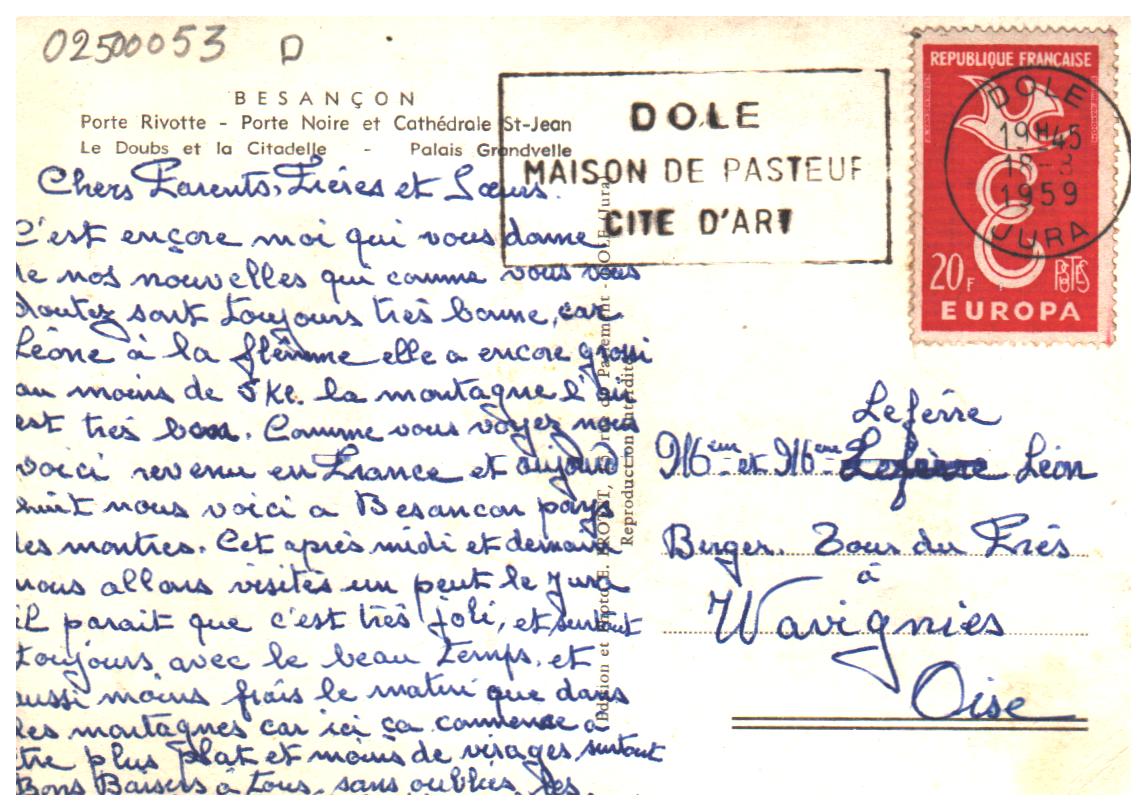 02500053 D
BESANÇON
Porte Rivotte - Porte Noire et Cathédrale St-Jean
Le Doubs et la Citadelle - Palais Grandvelle
DOLE
MAISON DE PASTEUR
CITE D'ART
REPUBLIQUE FRANÇAISE
20F
POSTES
EUROPA
DOLE
19H45
18-3
1959
JURA
Chers Parents, Frères et Sœurs.
C'est ençore moi qui vous donne
de nos nouvelles qui comme vous vous
doutez sont toujours très bonne, car
Léone à la flêmme elle a encore grossi
au moins de 5 Kg. la montagne l'air
est très bon. Comme vous voyez nous
voici revenu en France et aujourd
huit nous voici a Besancon pays
des montres. Cet après midi et demain
nous allons visités un peut le Jura
il parait que c'est très joli, et surtout
toujours avec le beau temps. et
aussi moins frais le matin que dans
les montagnes car ici ça commence à
être plus plat et moins de virages surtout
Bons Baisers à tous, sans oubliés les
Reproduction interdite
Lefèvre
Mr et Mme Lefèvre Léon
Berger. Tour du Près
à
Wavignies
Oise